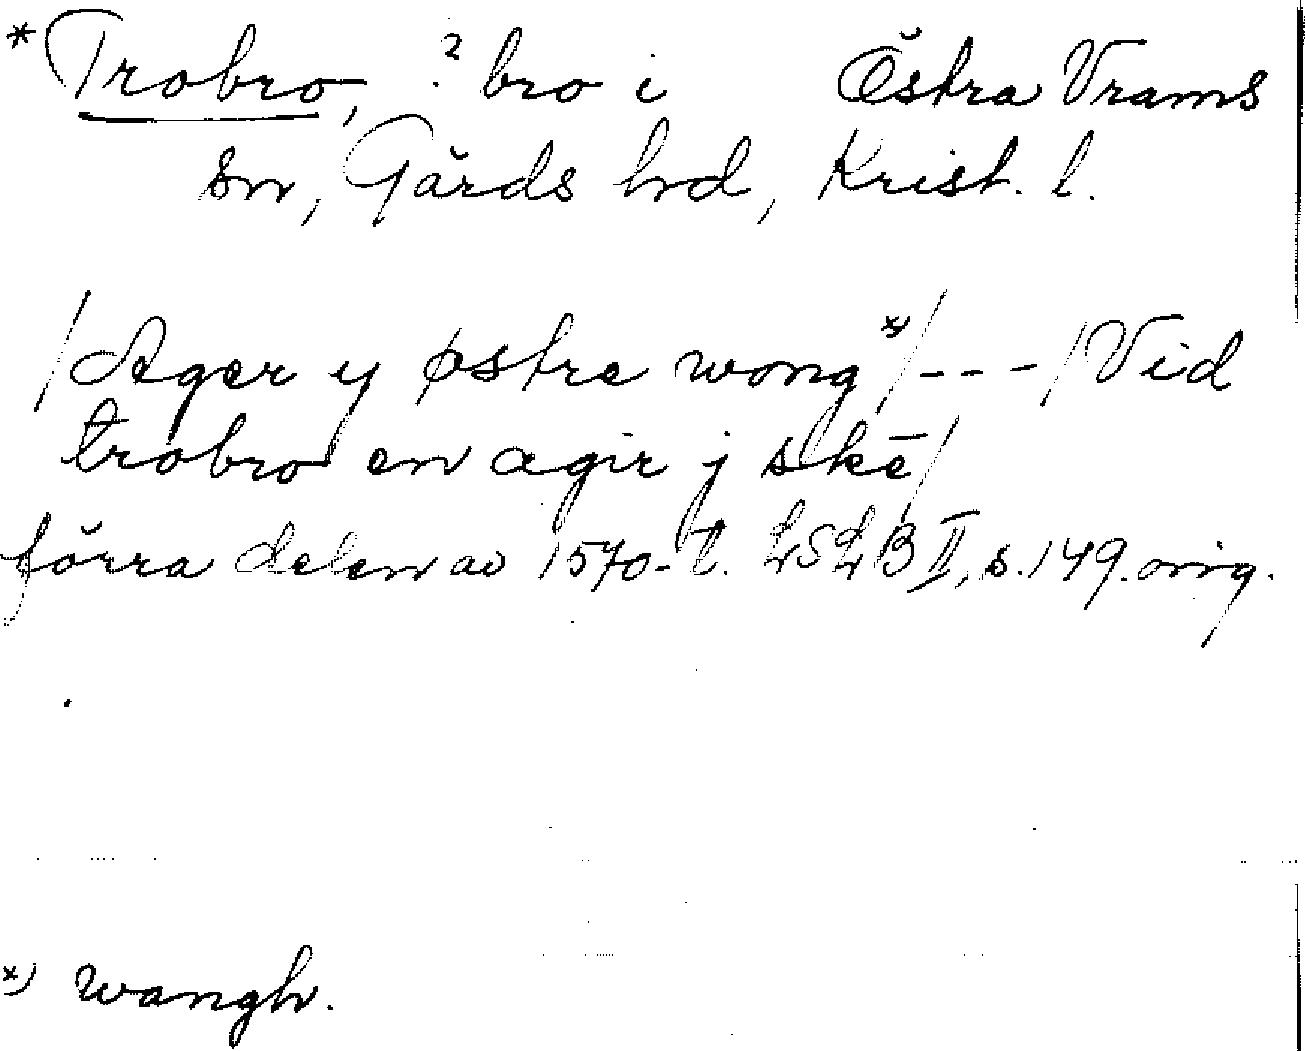 *Trobro, ? bro i Östra Vrams
sn, Gärds hd, Krist. l.
/Ager y østre wong*)/---/Vid
trobro en agir j skē/
förra delen av 1570-t. LSLB II, s. 149. orig.
*) wangh.